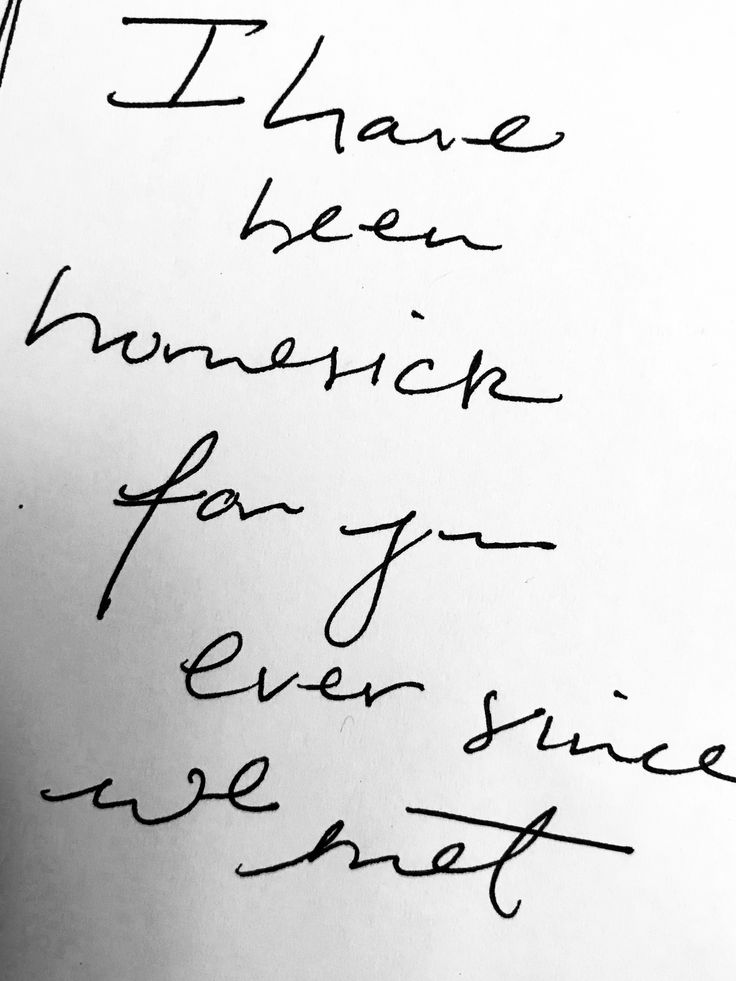 I have
been
homesick
for you
ever since
we
met